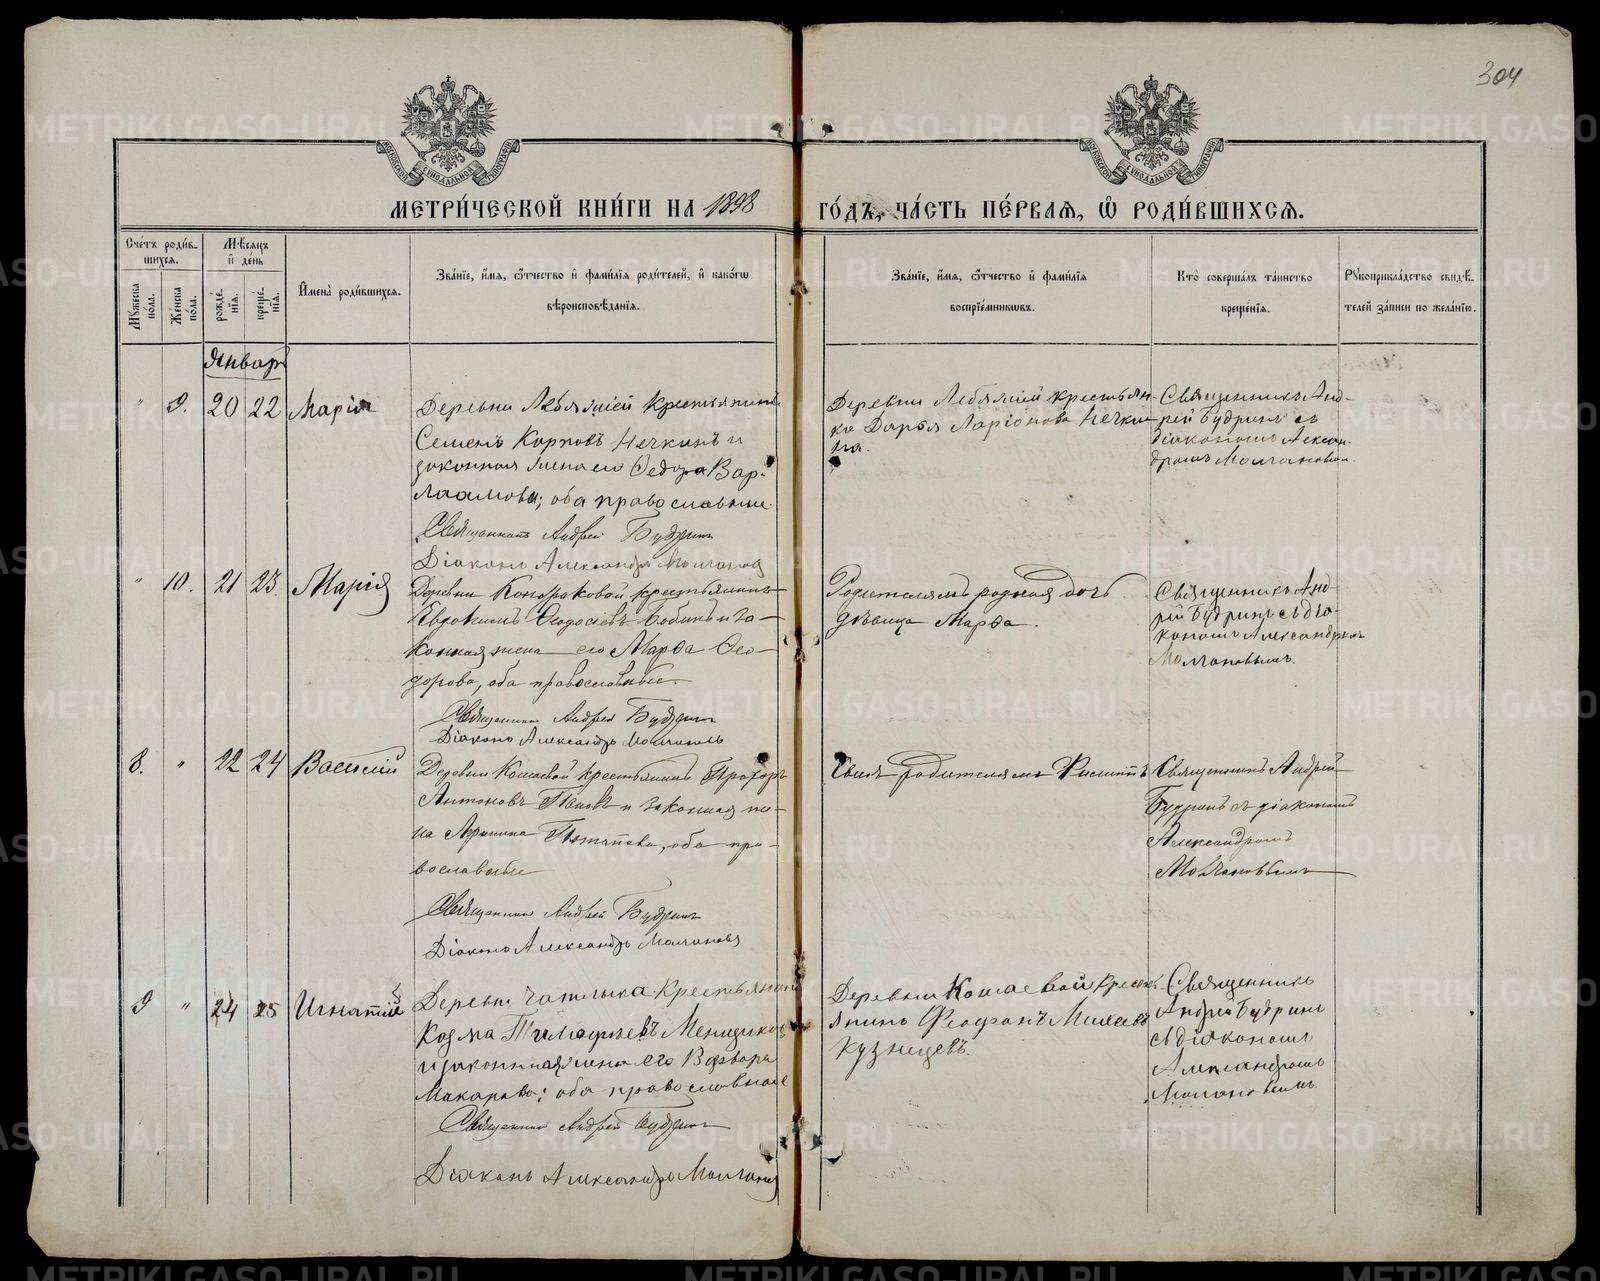 304
МЕТРИ́ЧЕСКОЙ КНИ́ГИ НА 1898
ГО́ДЪ, ЧА́СТЬ ПЕ́РВАЯ, Ѡ҆ РОДИ́ВШИХСЯ.
Сче́тъ роди́в-
шихся.
Му́жеска
по́ла.
Же́нска
по́ла.
Мѣ́сяцъ
и҆ де́нь
рожде́-
нїя.
креще́-
нїя.
И҆мена̀ роди́вшихся.
Зва́нїе, и҆́мя, ѻ҆́тчество и҆ фами́лїя роди́телей, и҆ како́гѡ
вѣроисповѣ́данїя.
Зва́нїе, и҆́мя, ѻ҆́тчество и҆ фами́лїя
воспрїе́мникѡвъ.
Кто̀ соверша́лъ та́инство
креще́нїя.
Рꙋкоприкла́дство свидѣ́-
телей за́писи по жела́нїю.
Январь
" 9. 20 22 Марія
Деревни Лебяжіей крестьянинъ
Семенъ Карповъ Нечкинъ и
законная жена его Федора Вар-
лаамова; оба православные.
Священникъ Андрей Будринъ
Діаконъ Александръ Молчановъ
Деревни Лебяжіей крестьян-
ка Дарья Ларіонова Нечки-
на.
Священникъ Анд-
рей Будринъ съ
діакономъ Алексан-
дромъ Молчановым.
" 10. 21 23. Марія
Деревни Кондраковой крестьянинъ
Евдокимъ Феодосіевъ Бабинъ и за-
конная жена его Марѳа Ѳео-
дорова, оба православные.
Священникъ Андрей Будринъ
Діаконъ Александръ Молчановъ
Родителямъ родная дочь
дѣвица Марѳа.
Священникъ Анд-
рей Будринъ съ діа-
кономъ Александромъ
Молчановымъ.
8. " 22 24 Василій
Деревни Кошаевой крестьянинъ Прохоръ
Антоновъ Пановъ и законная же-
на Агрипина Потапова, оба пра-
вославные
Священникъ Андрей Будринъ
Діаконъ Александръ Молчановъ
родителямъ
Священникъ Андрей
Будринъ съ діакономъ
Александромъ
Молчановымъ
9 " 24 25 Игнатій
Деревни Чатлыка крестьянинъ
Козма Тимофѣевъ Меньщиковъ
и законная жена его Варвара
Макарова; оба православные
Священникъ Андрей Будринъ
Діаконъ Александръ Молчановъ
Деревни Кошаевой кресть-
янинъ Феофанъ Михеевъ
Кузнецевъ.
Священникъ
Андрей Будринъ
съ діакономъ
Александромъ
Молчановымъ
METRIKI.GASO-URAL.RU